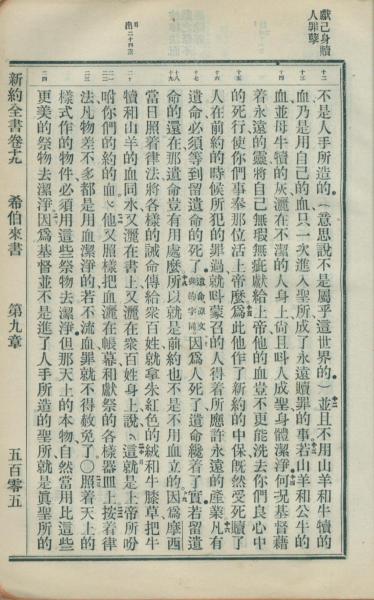 獻己身贖
人罪孽
不是人手所造的、(意思說不是屬乎這世界的)並且不用山羊和牛犢的
血、乃是用自己的血、只一次進入聖所、成了永遠贖罪的事、若山羊和公牛的
血、並母牛犢的灰、灑在不潔的人身上、尙且呌人成聖身體潔淨、何況基督藉
着永遠的靈、將自己無瑕無疵獻給上帝、他的血豈不更能洗去你們良心中
的死行、使你們事奉那位活上帝麼、爲此他作了新約的中保、旣然受死贖了
人在前約的時候所犯的罪過、就呌蒙召的人得着所應許永遠的產業、凡有
遺命必須等到留遺命的死了、因爲人死了遺命纔着了實、若留遺
命的還在、那遺命豈有用處麼、所以就是前約、也不是不用血立的、因爲摩西
當日照着律法將各樣的誡命傳給衆百姓、就拿朱紅色的絨和牛膝草、把牛
出
二十四
犢和山羊的血同水、又灑在書上、又灑在衆百姓身上、說、這就是上帝所吩
咐你們的約的血、他又照樣把血灑在帳幕和獻祭的各樣器皿上、按着律
法、凡物差不多都是用血潔淨的、若不流血、罪就不得赦免了〇照着天上的
樣式作的物件、必須用這些祭物去潔淨、但那天上的本物、自然當用比這些
更美的祭物去潔淨、因爲基督並不是進了人手所造的聖所、就是眞聖所的
新約全書卷十九 希伯來書 第九章 五百零五